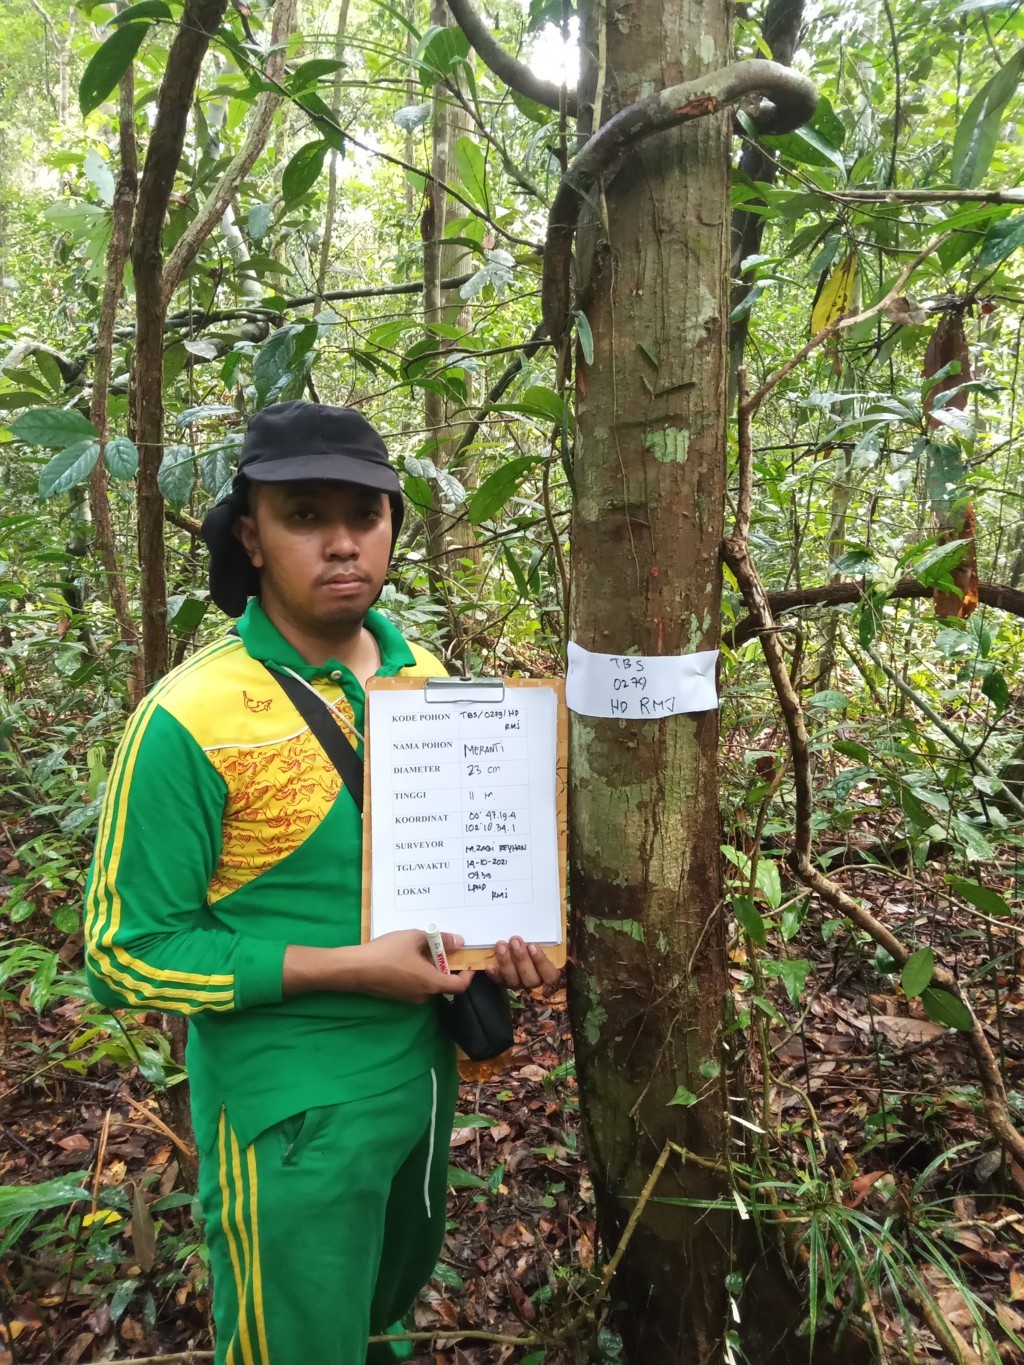 TBS
0279
HD RMJ
KODE POHON TBS/0279/HD
RMJ
NAMA POHON MERANTI
DIAMETER 23 cm
TINGGI 11 M
KOORDINAT 00° 47.19.4
102° 10.34.1
SURVEYOR M.ZAGI REYHAN
TGL/WAKTU 14-10-2021
09.39
LOKASI LPHD
RMJ